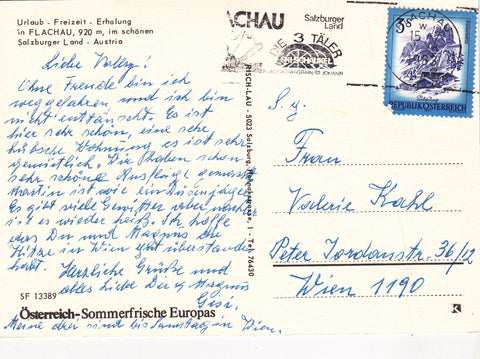 Urlaub - Freizeit - Erholung
in FLACHAU, 920 m, im schönen
Salzburger Land - Austria
Liebe Valley!
Ohne Freude bin ich
weggefahren, und ich bin
nicht enttäuscht. Es ist
hier sehr schön, eine sehr
hübsche Wohnung, es ist sehr
gemütlich. Wir haben schon
sehr schöne Ausflüge gemacht
Martin ist wie ein
Es gibt viele Gewitter, aber nachher
ist es wieder heiß. Ich hoffe
das Du und Magnus die
Hitze in Wien gut überstanden
habt. Herzliche Grüße und
alles Liebe Dir u. Magnus
Gesi.
Meine drei sind bis Samstag in Wien.
SF 13389
Österreich-Sommerfrische Europas
FRISCH-LAU - 5023 Salzburg, 1 - Tel. 76430
FLACHAU
Salzburger
Land
DIE 3 TÄLER
SKISCHAUKEL
FLACHAU-WAGRAIN-ST. JOHANN
FLACHAU
REPUBLIK ÖSTERREICH
S. g.
Frau
Valerie Kahl
Peter Jordanstr. 36/12
Wien 1190
K